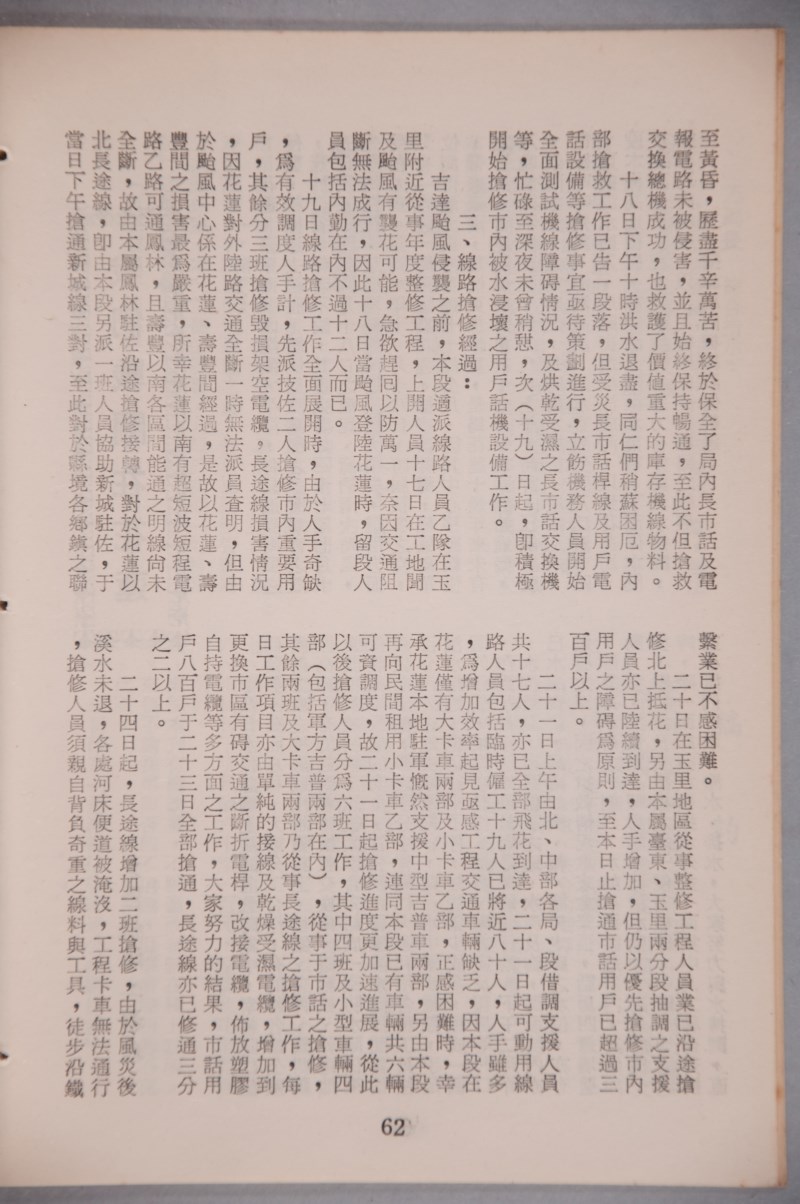 至黃昏，歷盡千辛萬苦，終於保全了局內長市話及電
報電路未被侵害，並且始終保持暢通，至此不但搶救
交換總機成功，也救護了價值重大的庫存機線物料。
十八日下午十時洪水退盡，同仁們稍蘇困厄，內
部搶救工作已告一段落，但受災長市話桿線及用戶電
話設備等搶修事宜亟待策劃進行，立飭機務人員開始
全面測試機線障碍情況，及烘乾受濕之長市話交換機
等，忙碌至深夜未曾稍憇，次（十九）日起，卽積極
開始搶修市內被水浸壞之用戶話機設備工作。
三、線路搶修經過：
吉達颱風侵襲之前，本段適派線路人員乙隊在玉
里附近從事年度整修工程，上開人員十七日在工地聞
及颱風有襲花可能，急欲趕囘以防萬一，奈因交通阻
斷無法成行，因此十八日當颱風登陸花蓮時，留段人
員包括內勤在內不過十二人而已。
十九日線路搶修工作全面展開時，由於人手奇缺
，爲有效調度人手計，先派技佐二人搶修市內重要用
戶，其餘分三班搶修毀損架空電纜。長途線損害情況
，因花蓮對外陸路交通全斷一時無法派員查明，但由
於颱風中心係在花蓮、壽豐間經過，是故以花蓮、壽
豐間之損害最爲嚴重，所幸花蓮以南有超短波短程電
路乙路可通鳳林，且壽豐以南各區間能通之明線尙未
全斷，故由本屬鳳林駐佐沿途搶修接轉，對於花蓮以
北長途線，卽由本段另派一班人員協助新城駐佐，于
當日下午搶通新城線三對，至此對於縣境各鄉鎭之聯
繫業已不感困難。
二十日在玉里地區從事整修工程人員業已沿途搶
修北上抵花，另由本屬臺東、玉里兩分段抽調之支援
人員亦已陸續到達，人手增加，但仍以優先搶修市內
用戶之障碍爲原則，至本日止搶通市話用戶已超過三
百戶以上。
二十一日上午由北、中部各局、段借調支援人員
共十七人，亦已全部飛花到達，二十一日起可動用線
路人員包括臨時僱工十九人已將近八十人，人手雖多
，爲增加效率起見亟感工程交通車輛缺乏，因本段在
花蓮僅有大卡車兩部及小卡車乙部，正感困難時，幸
承花蓮本地駐軍慨然支援中型吉普車兩部，另由本段
再向民間租用小卡車乙部，連同本段已有車輛共六輛
可資調度，故二十一日起搶修進度更加速進展，從此
以後搶修人員分爲六班工作，其中四班及小型車輛四
部（包括軍方吉普兩部在內），從事于市話之搶修，
其餘兩班及大卡車兩部乃從事長途線之搶修工作，每
日工作項目亦由單純的接線及乾燥受濕電纜，增加到
更換市區有碍交通之斷折電桿，改接電纜，佈放塑膠
自持電纜等多方面之工作，大家努力的結果，市話用
戶八百戶于二十三日全部搶通，長途線亦已修通三分
之二以上。
二十四日起，長途線增加二班搶修，由於風災後
溪水未退，各處河床便道被淹沒，工程卡車無法通行
，搶修人員須親自背負奇重之線料與工具，徒步沿鐵
62